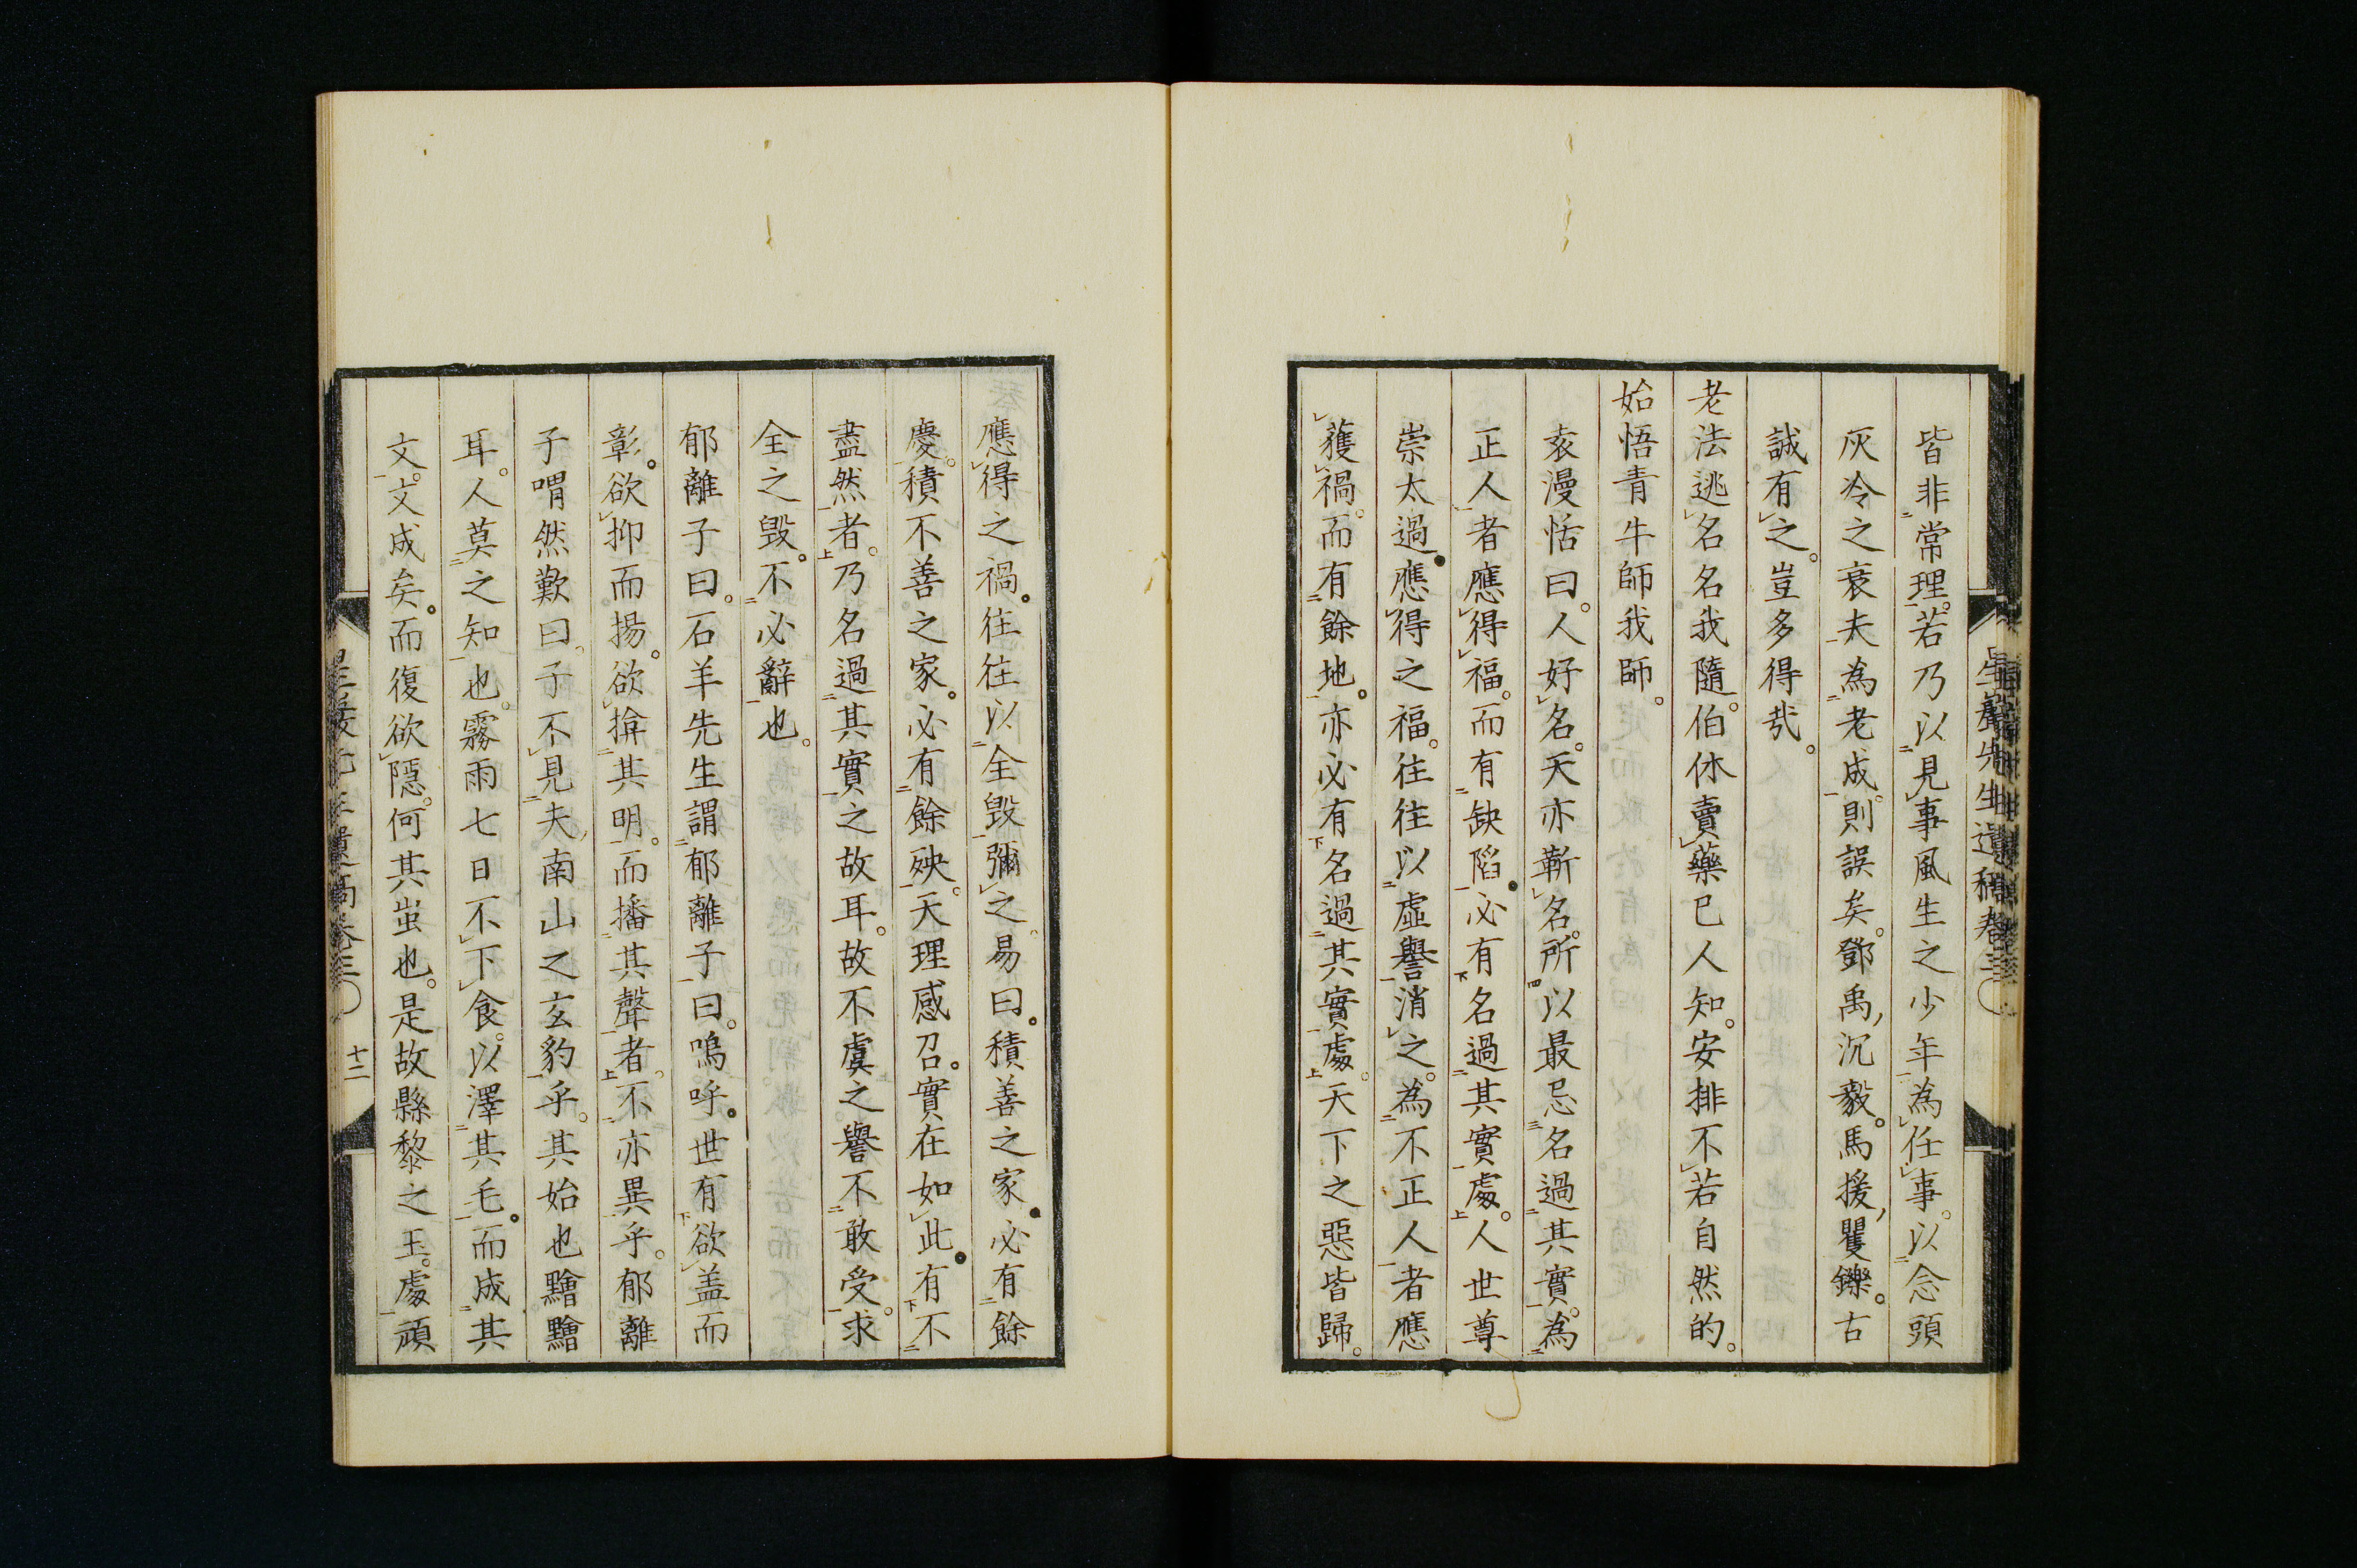 皆非常理。若乃以見事風生之少年為任事。以念頭
灰冷之衰夫為老成。則誤矣。鄧禹,沉毅。馬援,矍鑠。古
誠有之。豈多得哉。
老法逃名名我隨。伯休賣藥已人知。安排不若自然的。
始悟青牛師我師。
袁漫恬曰。人好名。天亦蘄名。所以最忌名過其實。為
正人者應得福。而有缺陷。必有名過其實處。人世尊
崇太過。應得之福。往往以虛譽消之。為不正人者應
獲禍。而有餘地。亦必有名過其實處。天下之惡皆歸。
應得之禍。往往以全毀彌之。易曰。積善之家。必有餘
慶。積不善之家。必有餘殃。天理感召。實在如此。有不
盡然者。乃名過其實之故耳。故不虞之譽不敢受。求
全之毀。不必辭也。
郁離子曰。石羊先生謂郁離子曰。嗚呼。世有欲盖而
彰。欲抑而揚。欲揜其明。而播其聲者。不亦異乎。郁離
子喟然歎曰。子不見夫,南山之玄豹乎。其始也黵黵
耳。人莫之知也。霧雨七日不下食。以澤其毛。而成其
文。文成矣。而復欲隱。何其蚩也。是故縣黎之玉。處頑
星巖先生遺稿卷三〇 十二